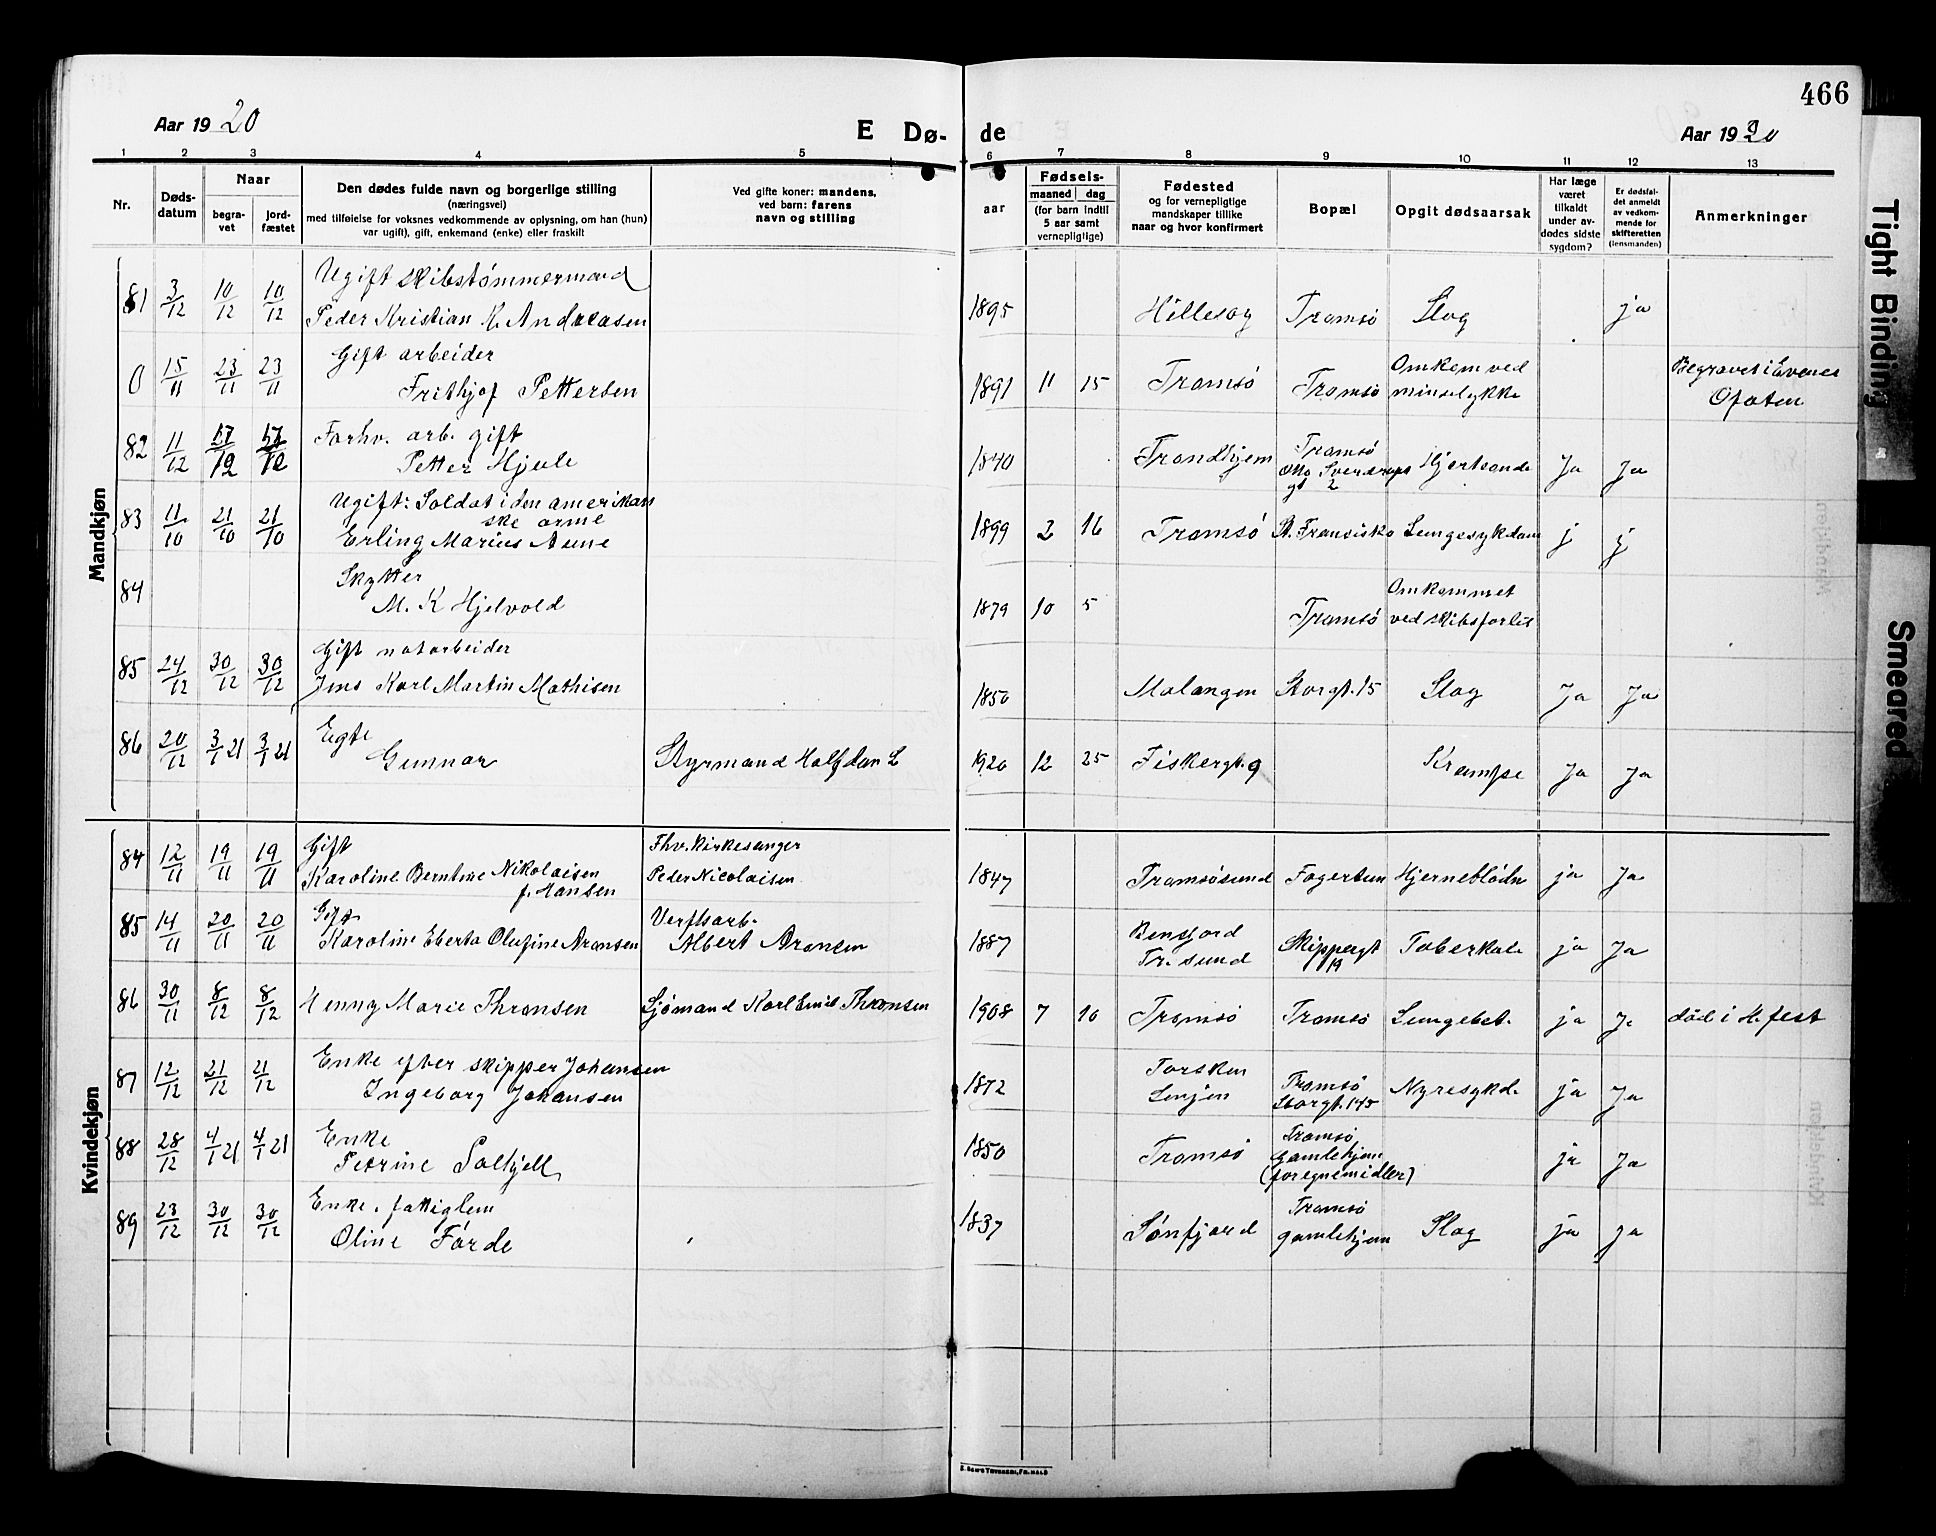 466
Aar 1920
E Dø-
de
Aar 1920
1 2 3 4 5 6 7 8 9 10 11 12 13
Nr.
Døds-
datum
Naar
begra-
vet
jord-
fæstet
Den dødes fulde navn og borgerlige stilling
(næringsvei)
med tilføielse for voksnes vedkommende av oplysning, om han (hun)
var ugift), gift, enkemand (enke) eller fraskilt
Ved gifte koner: mandens,
ved barn: farens
navn og stilling
aar
Fødsels-
maaned dag
(for barn indtil
5 aar samt
vernepligtige)
Fødested
og for vernepligtige
mandskaper tillike
naar og hvor konfirmert
Bopæl
Opgit dødsaarsak
Har læge
været
tilkaldt
under av-
dødes sidste
sygdom?
Er dødsfal-
det anmeldt
av vedkom-
mende for
skifteretten
(lensmanden)
Anmerkninger
Mandkjøn
81 3/12 10/12 10/12 Ugift skibstømmermand
Peder Kristian K. Andreasen 1895 Hillesøy Tromsø Slag ja
0 15/11 23/11 23/11 Gift arbeider
Frithjof Pettersen 1891 11 15 Tromsø Tromsø Omkom ved
mineulykke Begravet i Evenes
Ofoten
82 11/12 17/12 17/12 Forhv. arb. gift
Petter Hjule 1840 Trondhjem Tromsø
Otto Sverdrups
gt 2 Hjerteonde Ja Ja
83 11/10 21/10 21/10 Ugift: Soldat i den amerikan
ske arme
Erling Marius Aune 1899 2 16 Tromsø St. Fransisko Lungesykdom j j
84 Skytter
M. K Hjelvold 1879 10 5 Tromsø Omkommet
ved skibsforlis
85 24/12 30/12 30/12 Gift notarbeider
Jens Karl Martin Mathisen 1850 Malangen Storgt. 15 Slag Ja Ja
86 20/12 3/1 21 3/1 21 Egte
Gunnar Styrmand Halfdan L 1920 12 25 Fiskergt. 9 Krampe Ja Ja
Kvindekjøn
84 12/11 19/11 19/11 Gift
Karoline Berntine Nikolaisen
f. Hansen Fhv. Kirkesanger
Peder Nicolaisen 1847 Tromsøsund Fagertun Hjerneblødn ja Ja
85 14/11 20/11 20/11 Gift
Karoline Eberta Olufine Aronsen Verftsarb.
Albert Aronsen 1887 Bensjord
Tr. sund Skippergt
19 Toberkol. ja Ja
86 30/11 8/12 8/12 Henny Marie Thronsen Sjømand Karl Emil Thronsen 1908 7 10 Tromsø Tromsø Lungebet. ja Ja død i H.fest
87 12/12 21/12 21/12 Enke efter skipper Johansen
Ingeborg Johansen 1872 Torsken
Senjen Tromsø
Storgt. 145 Nyresykd. ja Ja
88 28/12 4/1 21 4/1 21 Enke
Petrine Solhjell 1850 Tromsø Tromsø
gamlehjem
(foregnemidler) ja Ja
89 23/12 30/12 30/12 Enke, fattiglem
Oline Førde 1837 Sønfjord Tromsø
gamlehjem Slag ja ja
Tight Binding
Smeared